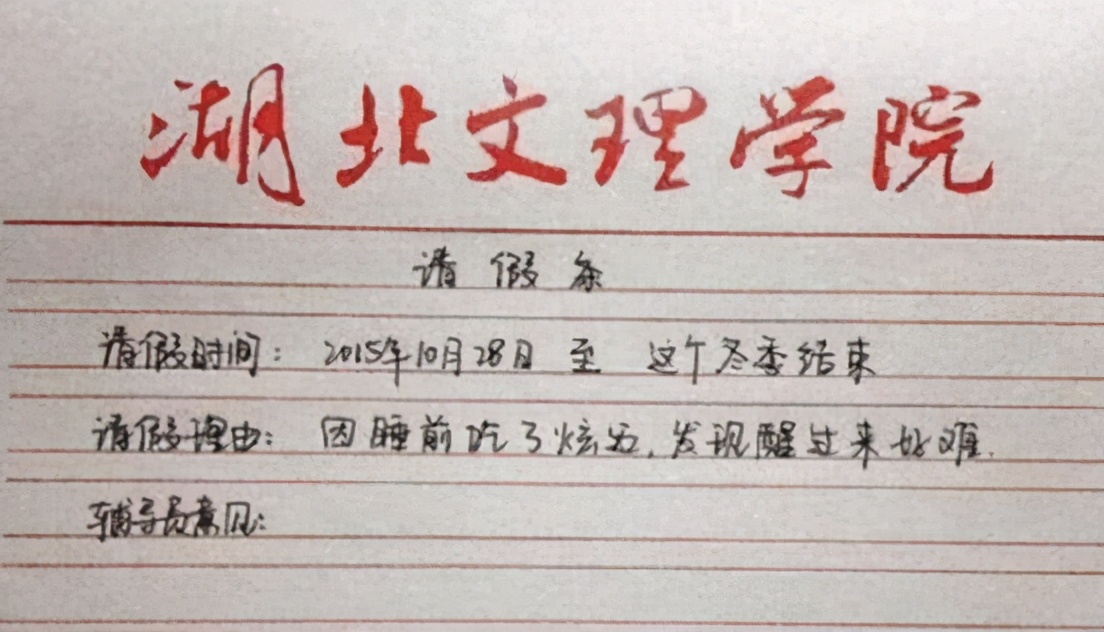 湖北文理学院
请假条
请假时间: 2015年10月28日 至 这个冬季结束
请假理由: 因睡前吃了炫迈,发现醒过来好难.
辅导员意见: